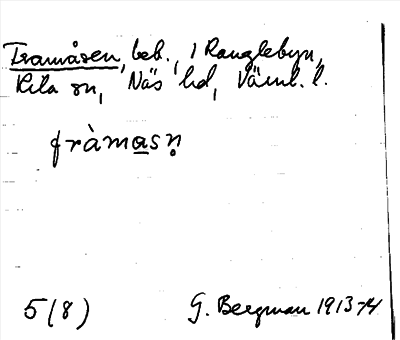 Framåsen, beb., i Ranglebyn,
Kila sn, Näs hd, Värml. l.
fràmasn̥
5(8) G. Bergman 1913-14